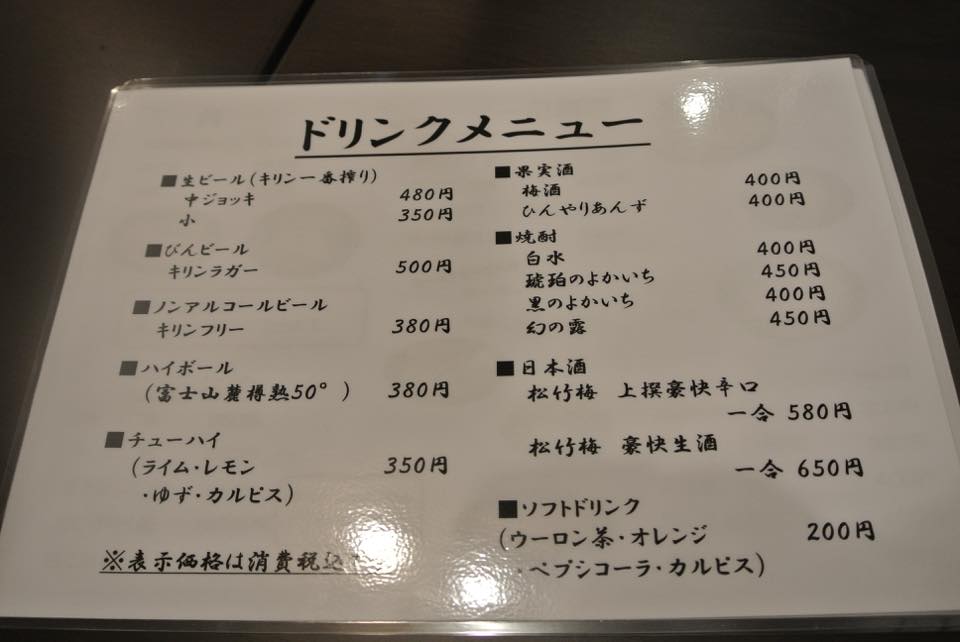 ドリンクメニュー
■生ビール(キリン一番搾り)
中ジョッキ 480円
小 350円
■びんビール
キリンラガー 500円
■ノンアルコールビール
キリンフリー 380円
■ハイボール
(富士山麓樽熟50° ) 380円
■チューハイ
(ライム・レモン 350円
・ゆず・カルピス)
※表示価格は消費税込
■果実酒
梅酒 400円
ひんやりあんず 400円
■焼酎
白水 400円
琥珀のよかいち 450円
黒のよかいち 400円
幻の露 450円
■日本酒
松竹梅 上撰豪快辛口
一合 580円
松竹梅 豪快生酒
一合 650円
■ソフトドリンク
(ウーロン茶・オレンジ 200円
・ペプシコーラ・カルピス)